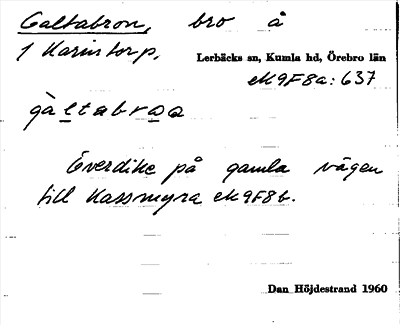 Galtabron, bro å
1 Karinstorp,
Lerbäcks sn, Kumla hd, Örebro län
ek 9F8a: 637
gàltabroa
Överdike på gamla vägen
till Kassmyra ek 9F8b.
Dan Höjdestrand 1960